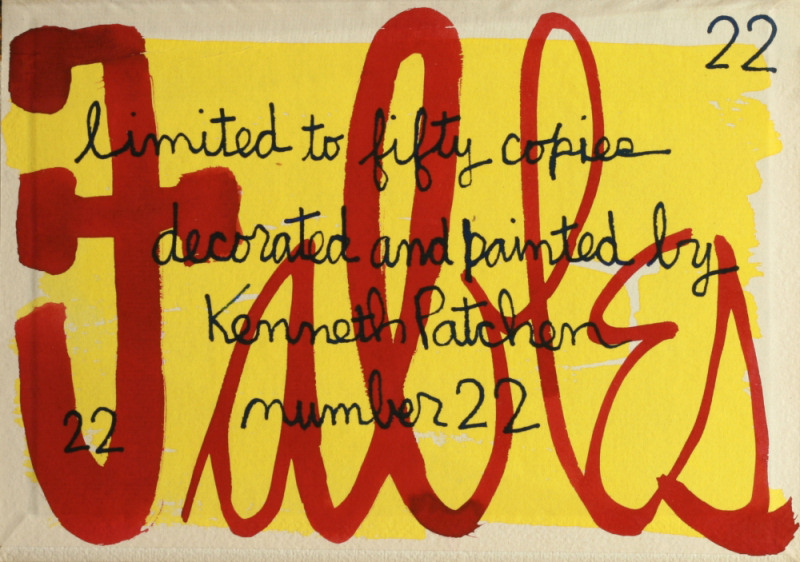 22
Fables
limited to fifty copies
decorated and painted by
Kenneth Patchen
number 22
22